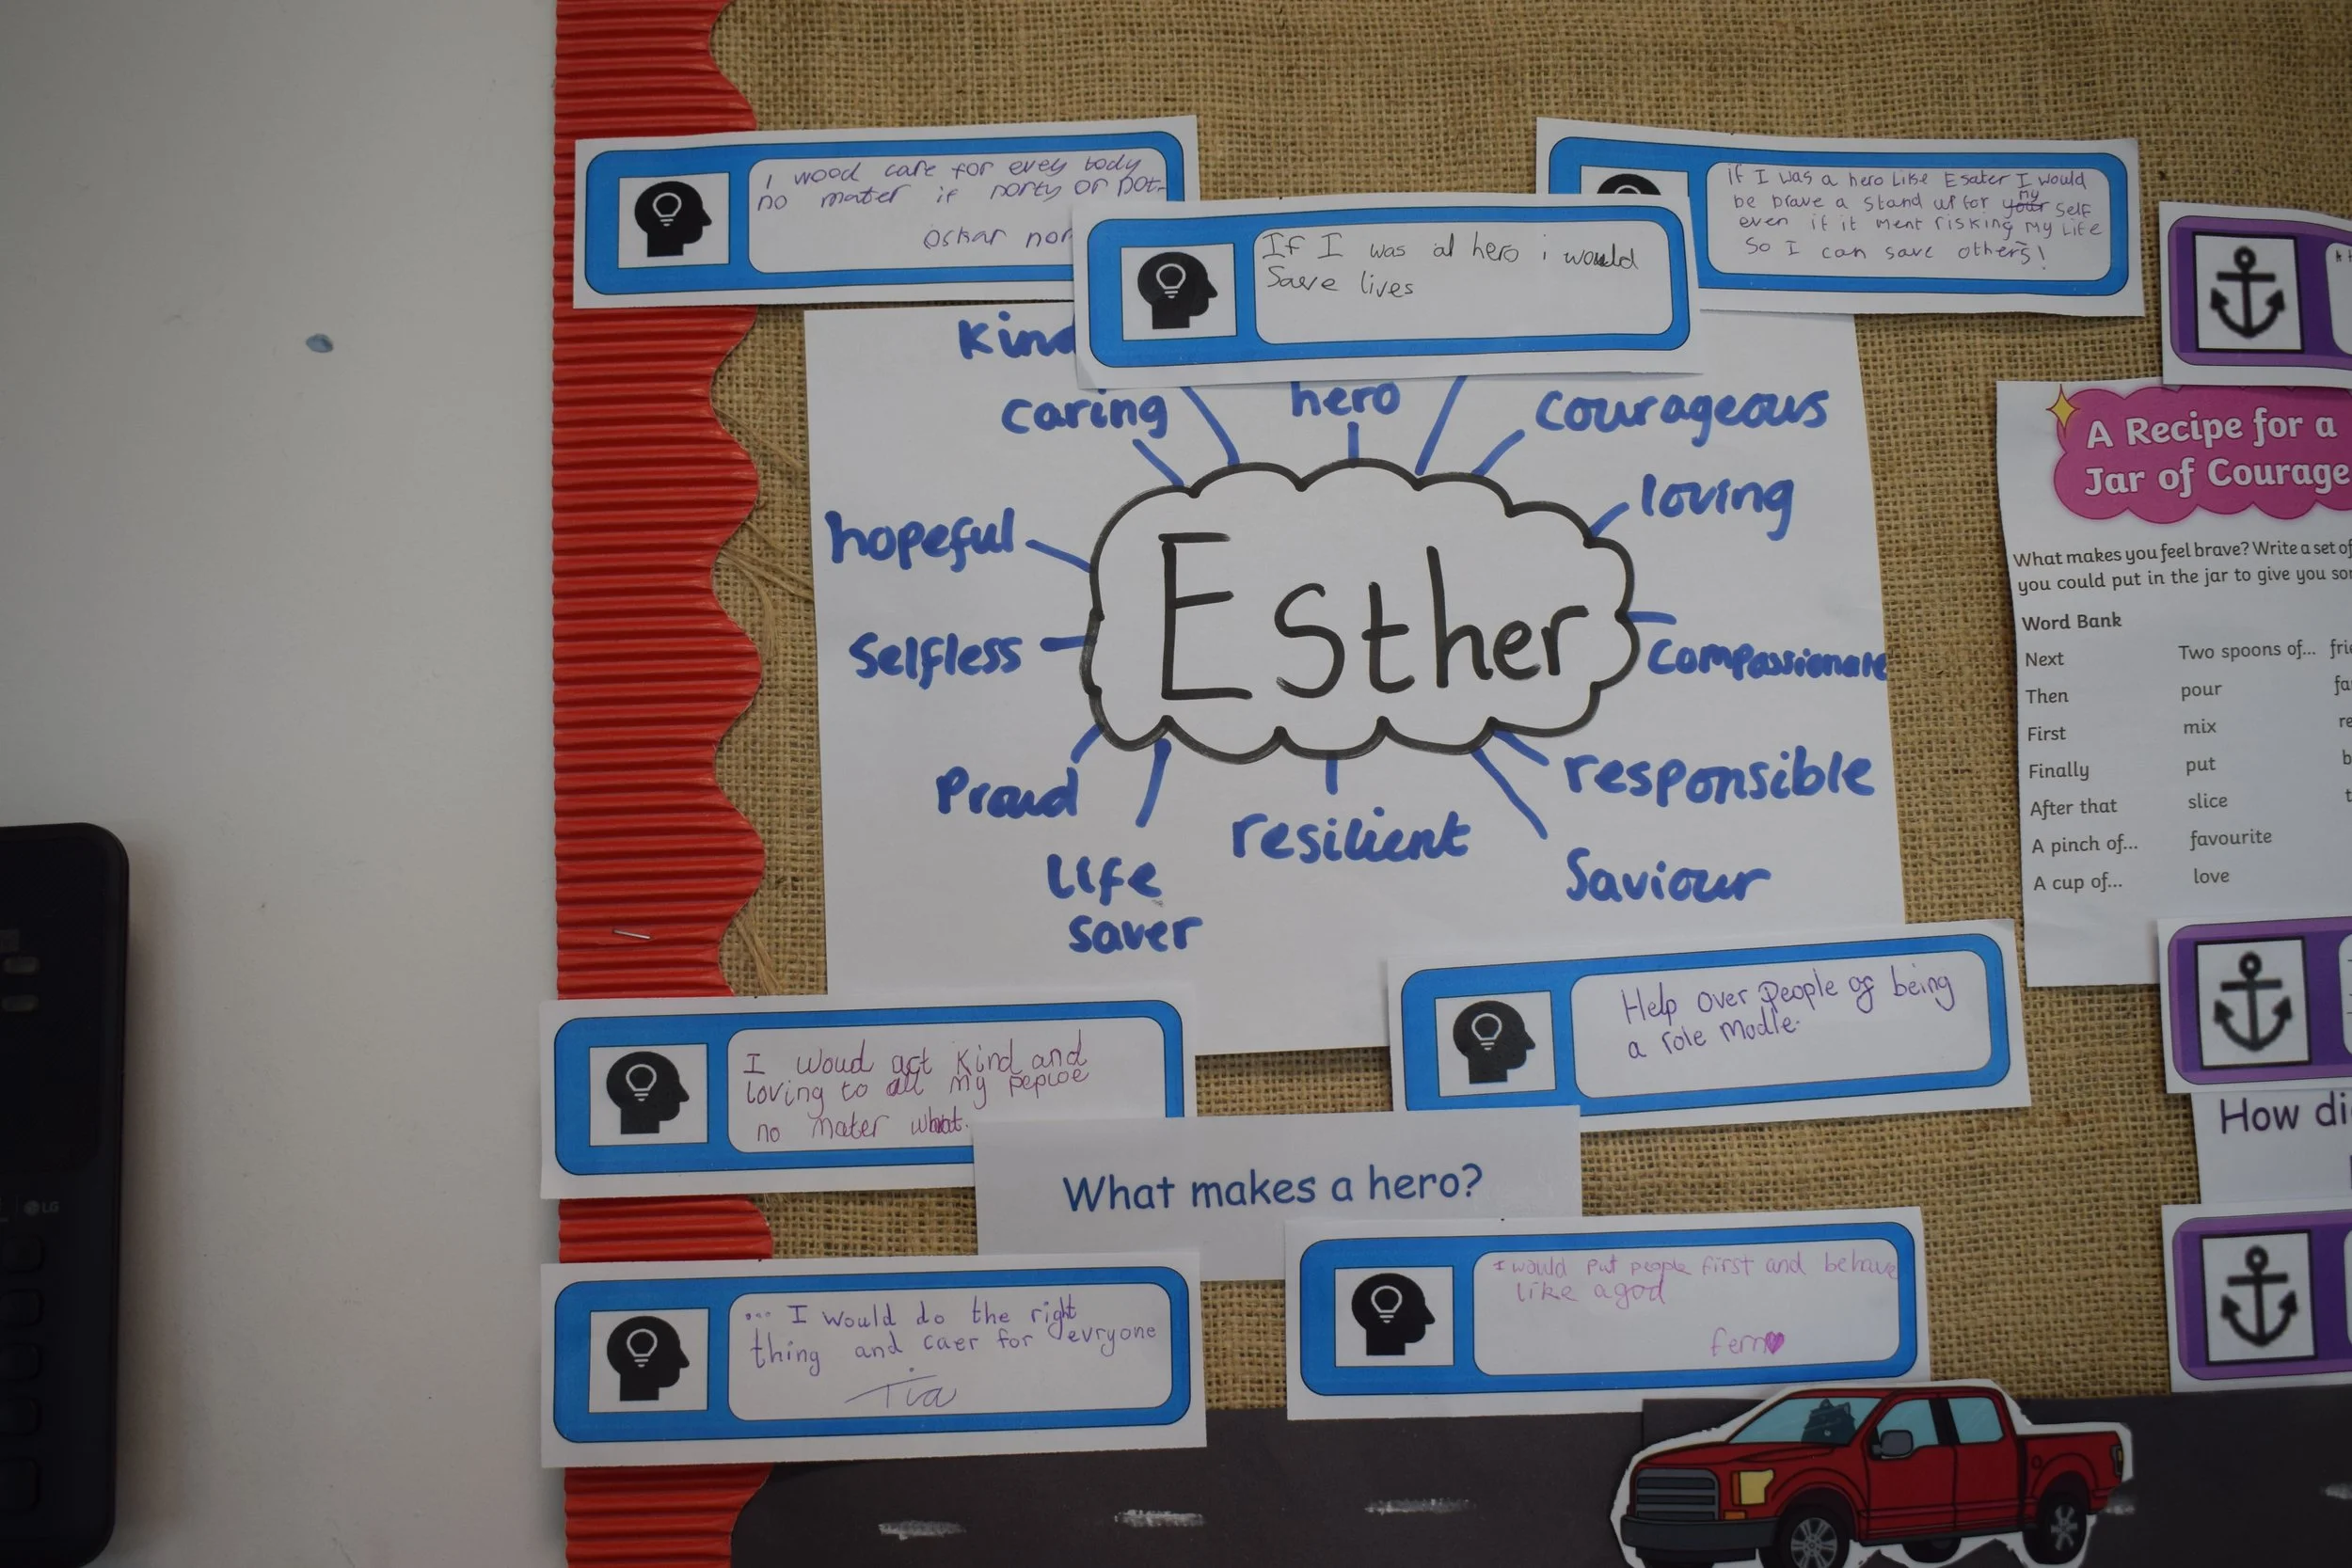 I wood care for evey body
no mater if norty or not-
oskar nor
If I was a hero i would
Save lives
if I was a hero Like Esater I would
be brave a stand up for my self
even if it ment risking my Life
So I can save others!
Kind
caring
hero
courageous
loving
hopeful
Esther
Selfless
Compassionate
Proud
responsible
resilient
Life
saver
Saviour
A Recipe for a
Jar of Courage
What makes you feel brave? Write a set of
you could put in the jar to give you
Word Bank
Next
Two spoons of...
Then
pour
First
mix
Finally
put
After that
slice
A pinch of...
favourite
A cup of...
love
I woud act kind and
loving to all my peploe
no mater what.
Help over People of being
a role modle.
How di
What makes a hero?
... I would do the right
thing and caer for evryone
Tia
I would put people first and behave
like a god
fern
LG